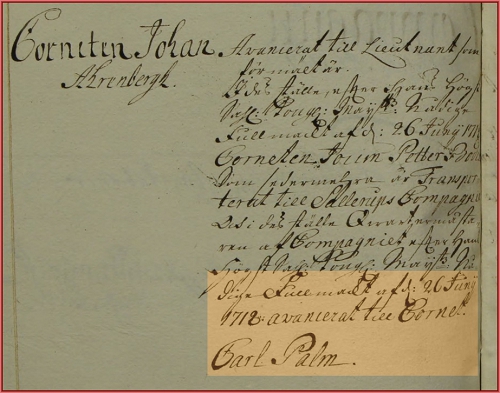 Corneten Johan
Ahrenbergh.
Avancerat till Lieutnant som
förmält är.
I des ställe, efter Hans Högst
Sahl: Kongl: Maij:tz Nådige
Fullmackt af d: 26 Junij 171
Corneten
Som sedermehra är Transpor
terat till Sallerups Compagnie
Och i des ställe Qwartermästa
ren af Compagniet efter Hans
Högst Sahl: Kongl: Maij:tz Nå
dige Fullmackt af d: 26 Junij
1718. avancerat till Cornet.
Carl Palm.